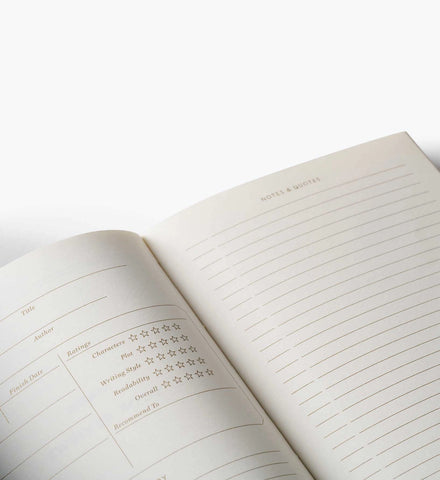 Title
Author
Finish Date
Ratings
Characters ☆☆☆☆☆
Plot ☆☆☆☆☆
Writing Style ☆☆☆☆☆
Readability ☆☆☆☆☆
Overall ☆☆☆☆☆
Recommend To
NOTES & QUOTES